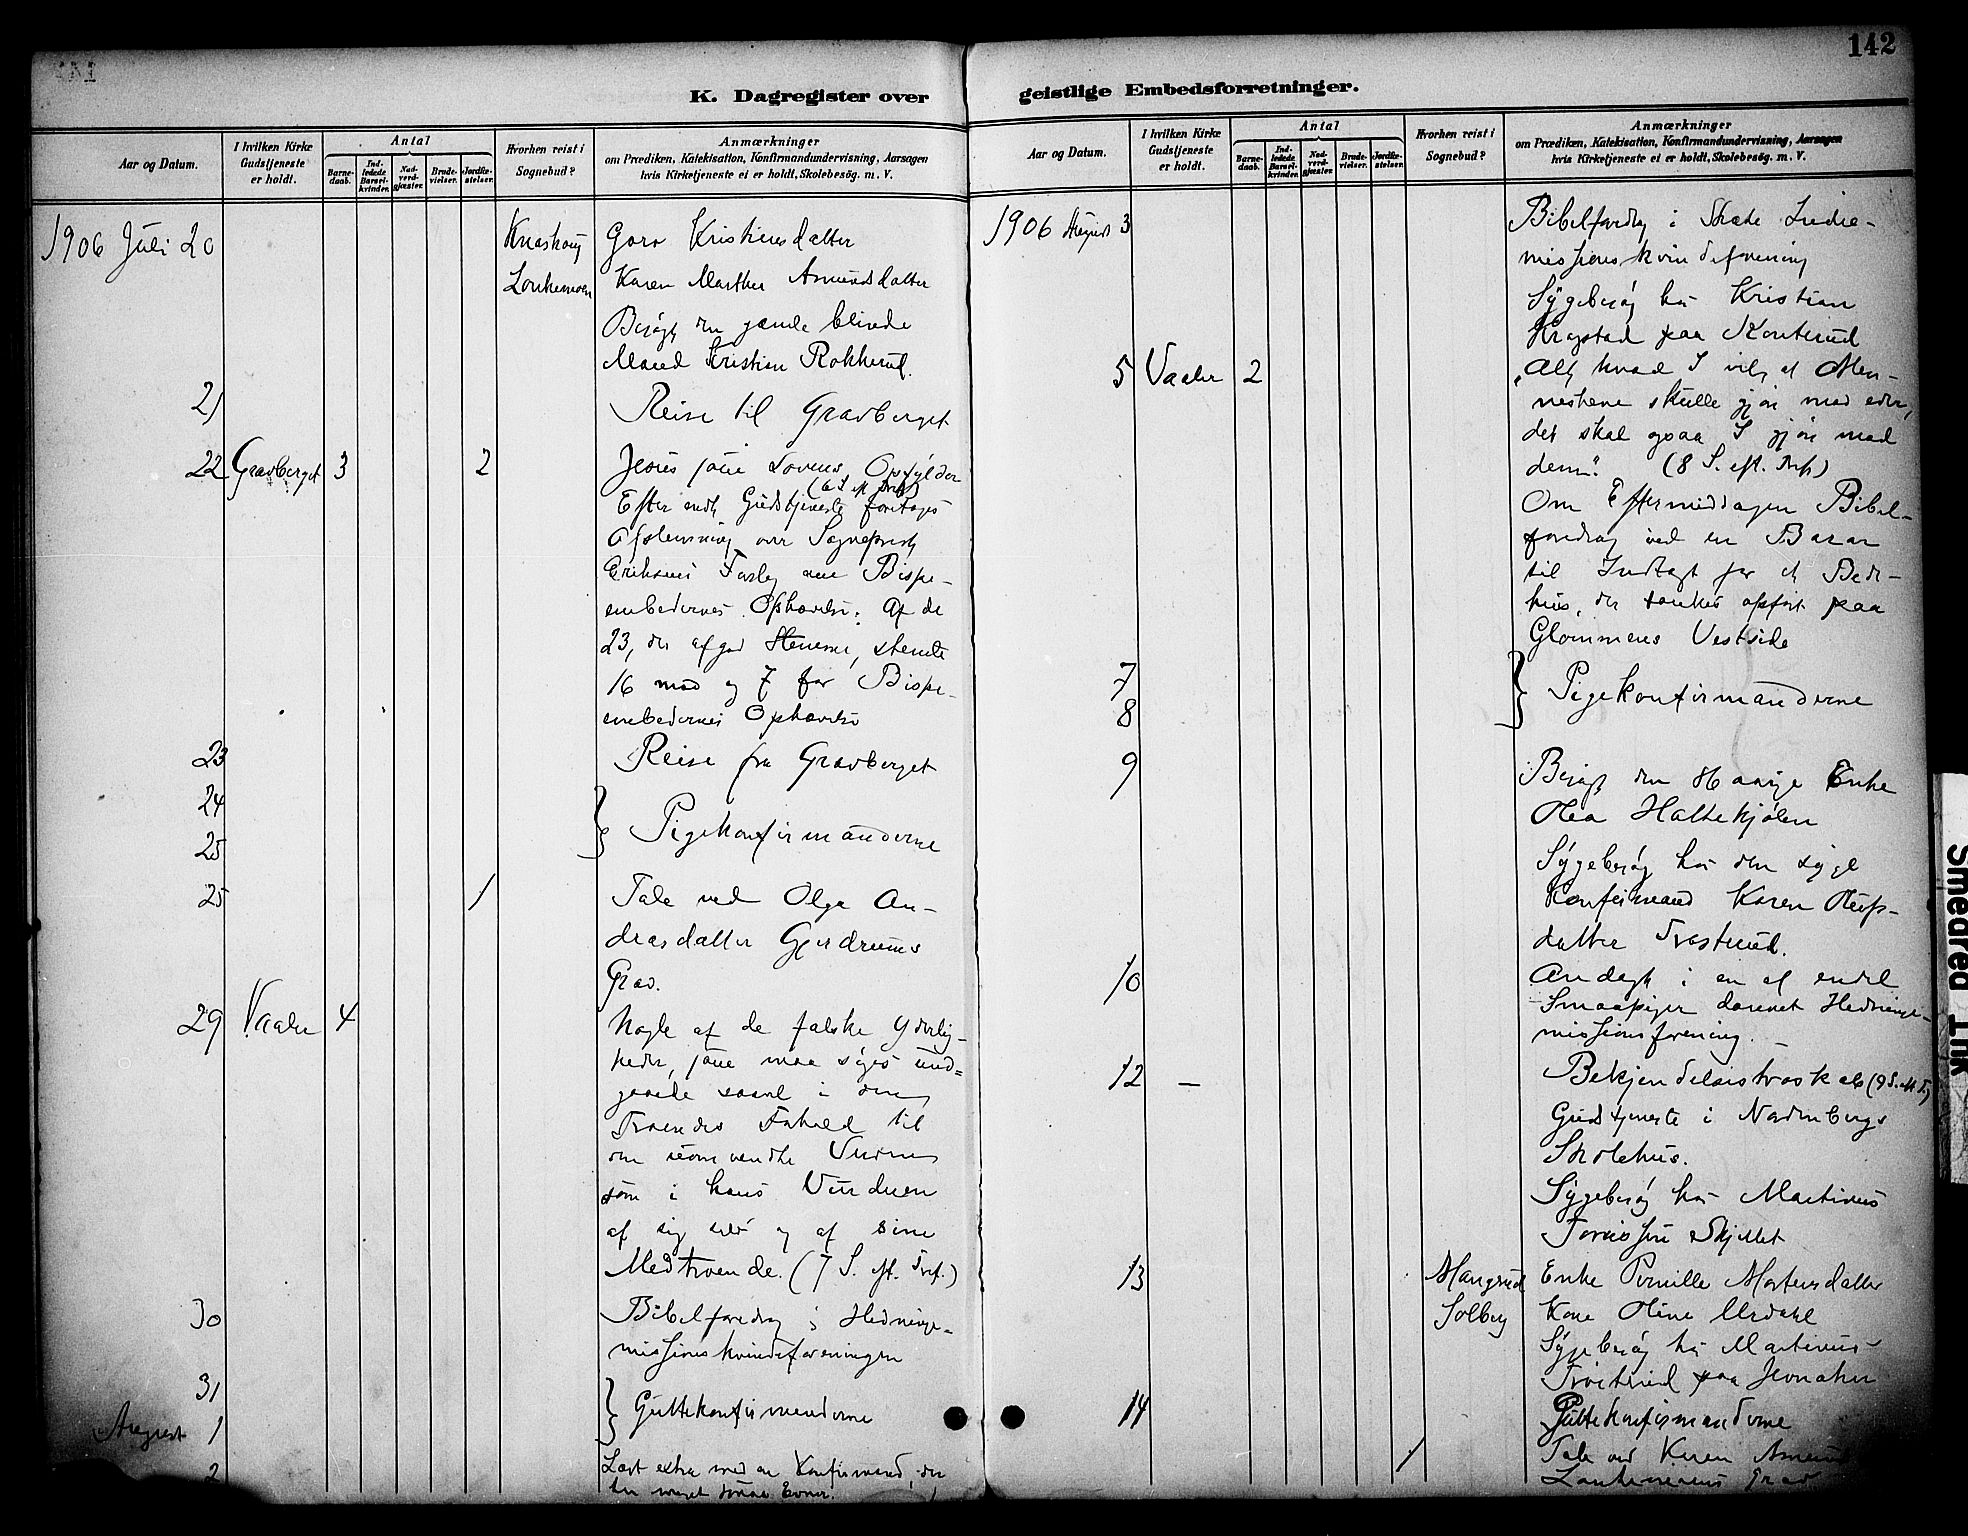 142
K. Dagregister over geistlige Embedsforretninger.
Aar og Datum.
I hvilken Kirke Gudstjeneste er holdt.
Antal
Barnedaab.
Indledede Barselkvinder.
Nadverdgjæster.
Brudevielser.
Jordfæstelser.
Hvorhen reist i Sognebud?
Anmærkninger
om Prædiken, Katekisation, Konfirmandundervisning, Aarsagen
hvis Kirketjeneste ei er holdt, Skolebesøg. m. V.
1906 Juli 20 Knashaug Goro Kristiensdatter
Karen Marthea Amundsdatter
Besøgt den gamle blinde
Mand Kristian Rokkerud.
21 Reise til Gravberget
22 Gravberget 3 2 Jesus som Lovens Opfylder
(6 S. eft. Tref.)
Efter endt Gudstjeneste foretages
Afstemning over Sogneprest
Eriksens Forslag om Bispe-
embedernes Ophævelse. Af de
23, der afgav Stemme, stemte
16 mod og 7 for Bispe-
embedernes Ophævelse
23 Reise fra Gravberget
24
25
} Pigekonfirmanderne
25 1 Tale ved Olga An-
dreasdatter Gjerdrums
Grav.
29 Vaaler 4 Nogle af de falske Yderlig-
heder, som maa søges und=
gaaede saavel i den
Troendes Forhold til
den uomvendte Verden
som i hans Vurderen
af sig selv og af sine
Medtroende. (7 S. eft. Tref.)
30 Bibelforedrag i Hedninge-
missionskvindeforeningen
31
August 1
} Guttekonfirmanderne
2 Læst extra med en Konfirmand, der
har meget smaa Evner.
Aar og Datum.
I hvilken Kirke Gudstjeneste er holdt.
Antal
Barnedaab.
Indledede Barselkvinder.
Nadverdgjæster.
Brudevielser.
Jordfæstelser.
Hvorhen reist i Sognebud?
Anmærkninger
om Prædiken, Katekisation, Konfirmandundervisning, Aarsagen
hvis Kirketjeneste ei er holdt, Skolebesøg. m. V.
1906 August 3 Bibelforedrag i Indre-
missionskvindeforening
Sygebesøg hos Kristian
Kragstad paa Konterud
5 Vaaler 2 „Alt hvad I vil, at Men-
neskene skulle gjøre mod eder,
det skal ogsaa I gjøre mod
dem". (8 S. eft. Tref.)
Om Eftermiddagen Bibel-
foredrag ved en Basar
til Indtægt for et Bede-
hus, der tænkes opført paa
Glommens Vestside
7
8
} Pigekonfirmanderne
9 Besøgt den aarige Enke
Olea Haltekjølen
Sygebesøg hos den syge
Konfirmand Karen Olufs-
datter
10 Andagt i en af endel
Smaapiger dannet Hedninge-
missionsforening.
12 – Bekjendelsistroskab (9 S. eft. T.)
Gudstjeneste i Nordenbergs
Skolehus.
Sygebesøg hos Martinus
Skjellet
13 Mangrud Enke Pernille Mortensdatter
Solberg Kone Oline Urdahl
Sygebesøg hos Martinus
paa
14 Guttekonfirmanderne
1 Tale ved Karen Amund
Grav
Smeared Ink